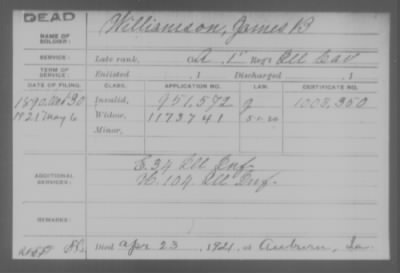 DEAD
NAME OF SOLDIER: Williamson, James B
SERVICE: Late rank, Co. A, 1st Reg't Ill Cav
TERM OF SERVICE: Enlisted , 1 Discharged , 1
DATE OF FILING. CLASS. APPLICATION NO. LAW. CERTIFICATE NO.
1890 30 Invalid, 951,572 g 1008,350
1921 May 6 Widow, 1173741
Minor,
ADDITIONAL SERVICES: E. 34 Ill Inf.
104 Ill Inf.
REMARKS:
Died Apr 23, 1921, at Auburn, Ia.